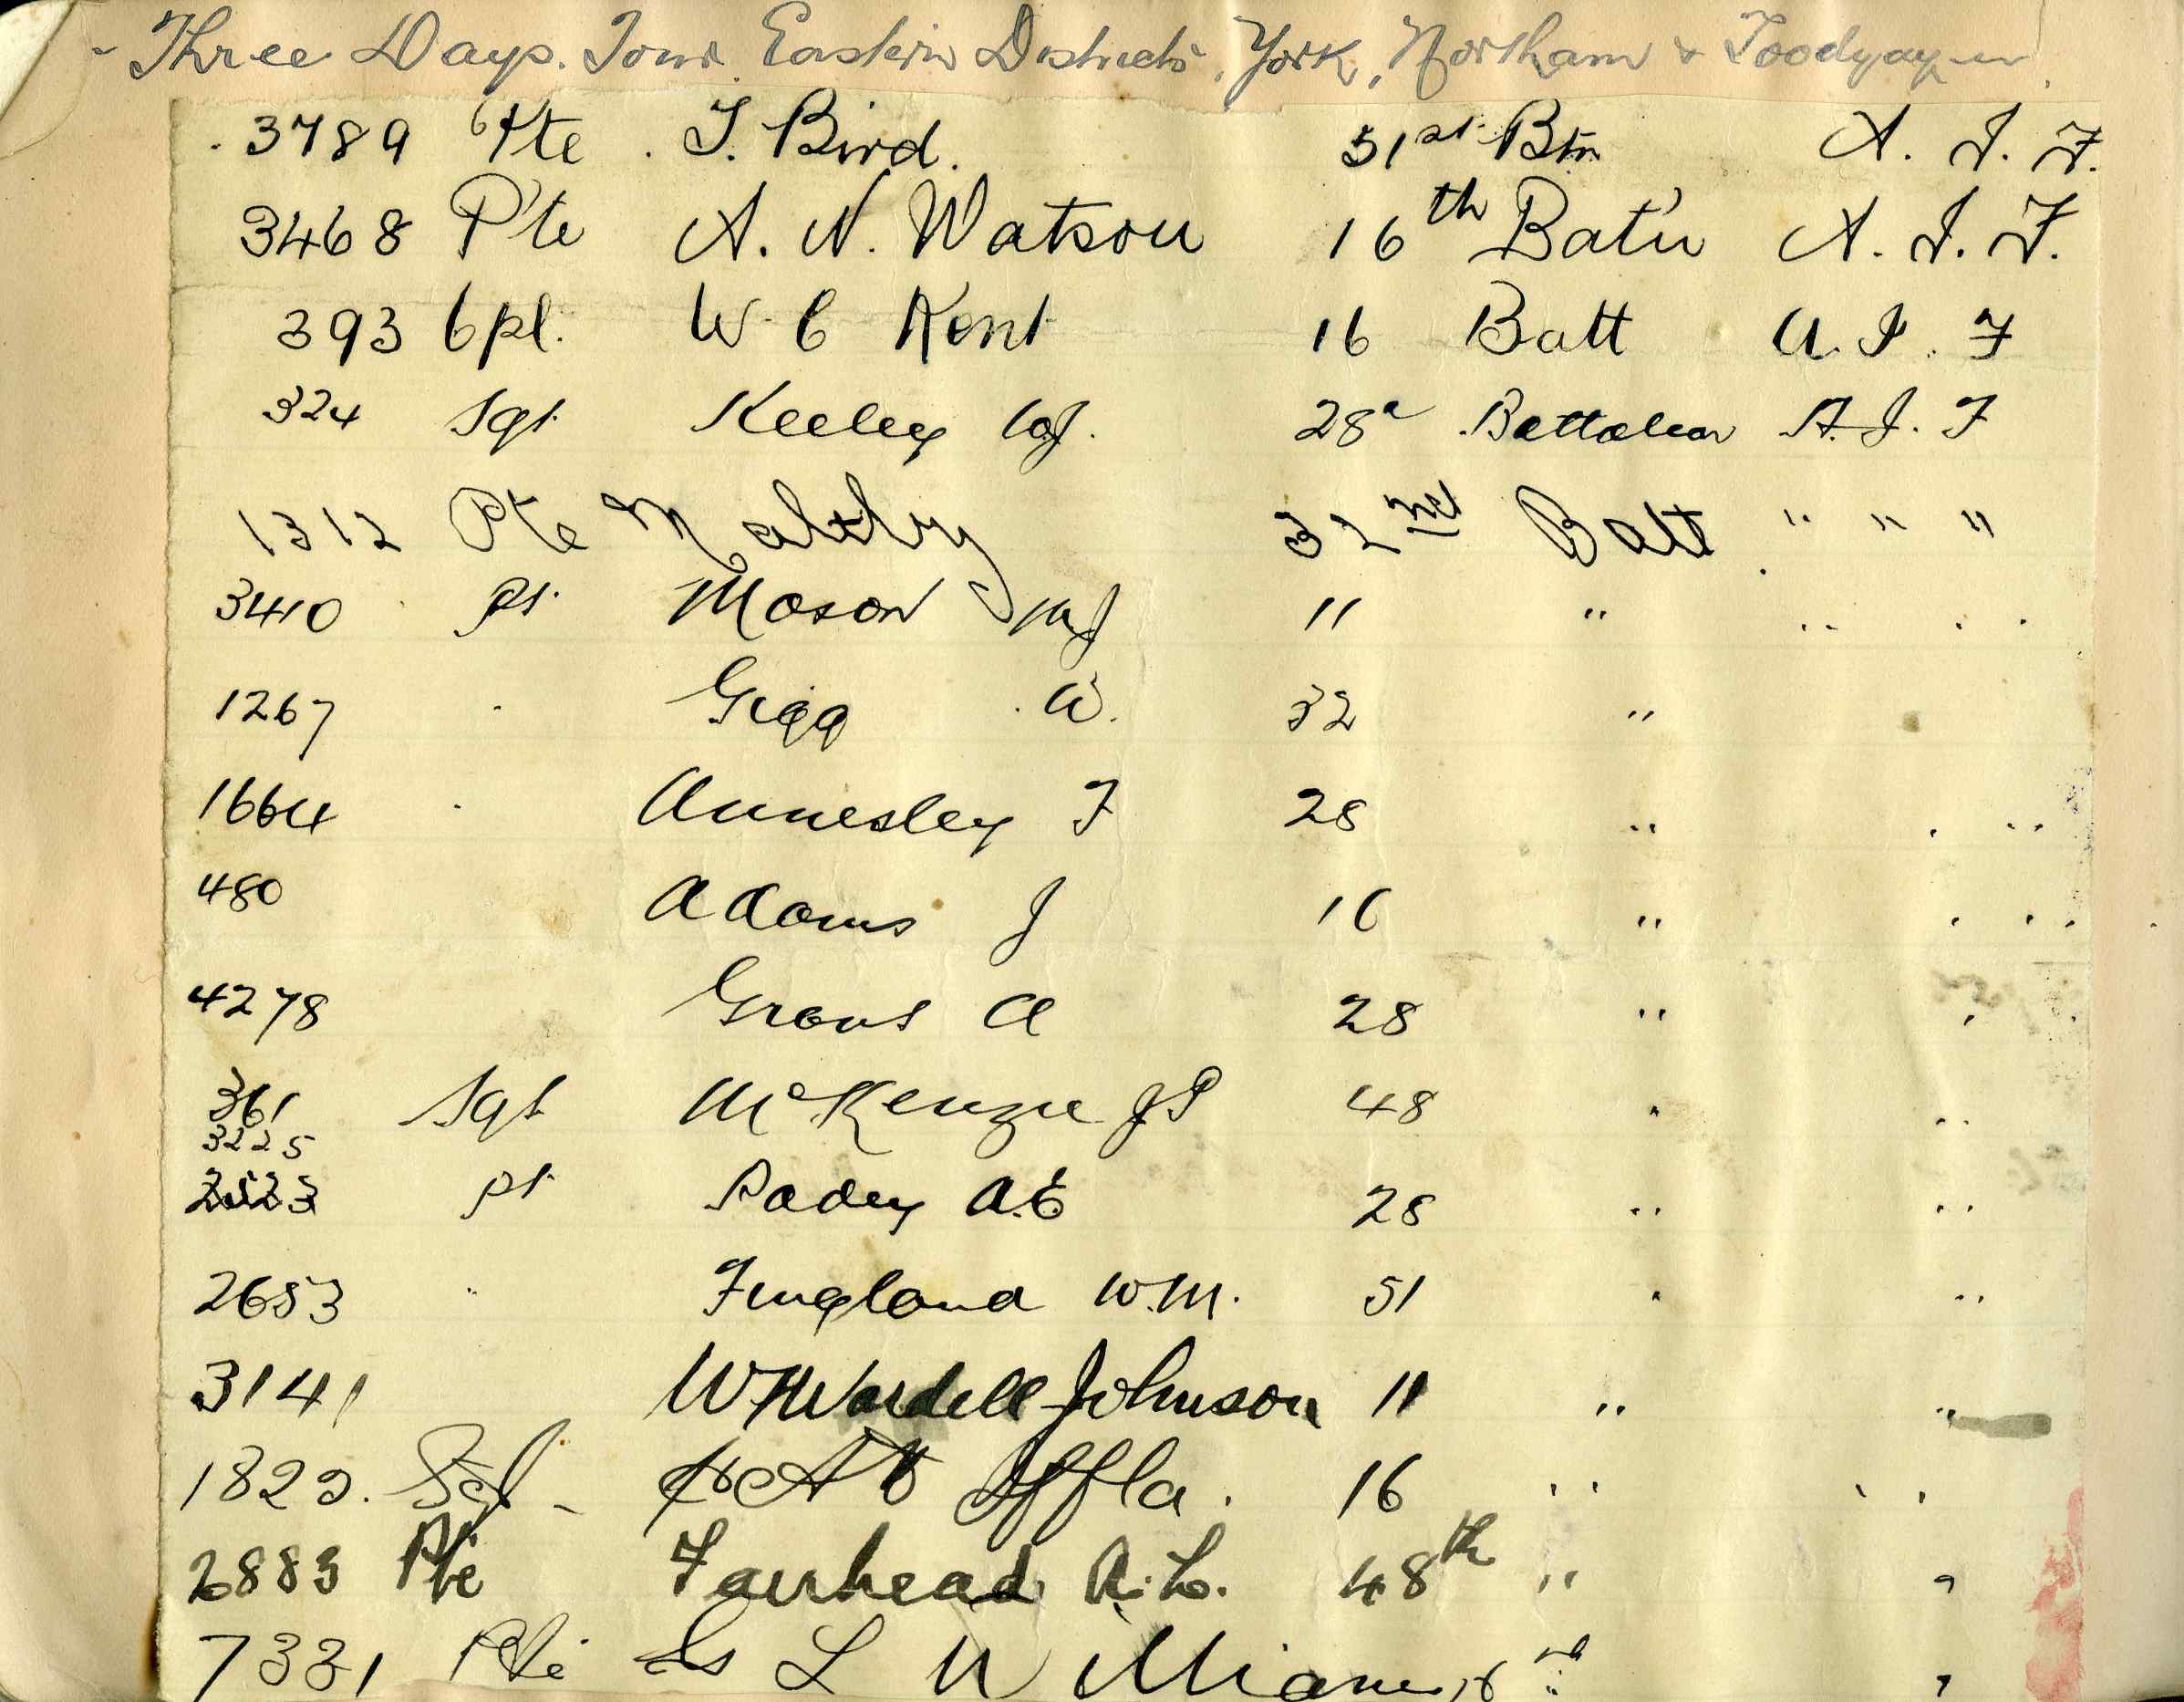 Three Days. Tour. Eastern Districts, York, Northam & Toodyay
3789 Pte J. Bird. 51st Btn A. I. F.
3468 Pte A. N. Watson 16th Bat'n A. I. F.
393 Cpl. W. C Kent 16 Batt A. I. F
324 Sgt Keeley 28 Battalion A. I. F
1312 Pte Maltby 32nd Batt " " "
3410 Pt Mason 11 "
1267 Gigg W. 32 "
1664 Annesley F 28 "
480 Adams J 16 "
4278 Grant A 28 "
361 Sgt McKenzie J P 48 "
3225
Pt A.E 28 "
2653 Fingland W.M. 51 "
3141 Wardell Johnson 11 " "
Sgt Iffla. 16 " "
2883 Pte Fairhead 48th " "
7331 Pte L Williams "